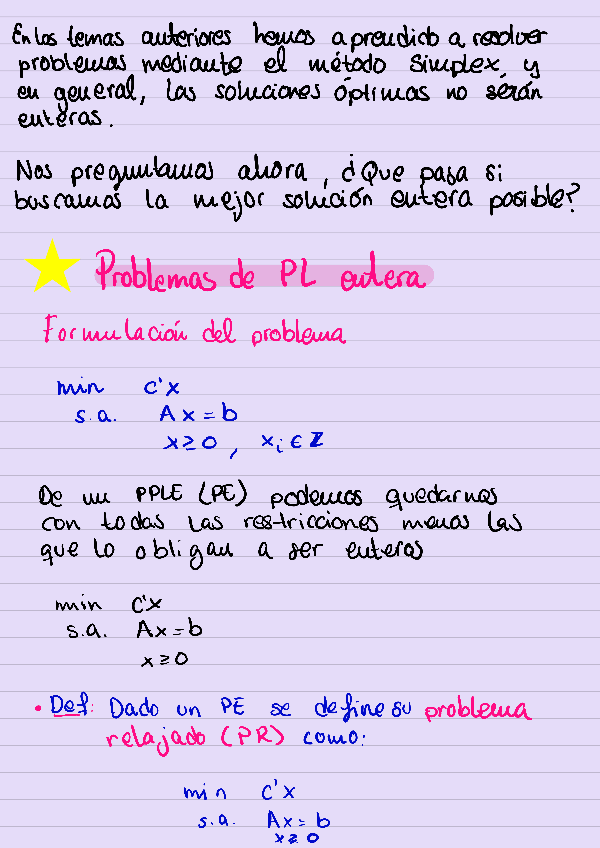 En los temas anteriores hemos aprendido a resolver
problemas mediante el método simplex, y
en general, las soluciones óptimas no serán
enteras.
Nos preguntamos ahora, ¿Que pasa si
buscamos la mejor solución entera posible?
Problemas de PL entera
Formulación del problema
min c'x
s.a. Ax=b
x≥0, xᵢ ∈ ℤ
De un PPLE (PE) podemos quedarnos
con todas las restricciones menos las
que lo obligan a ser enteros
min c'x
s.a. Ax=b
x≥0
• Def: Dado un PE se define su problema
relajado (PR) como:
min c'x
s.a. Ax=b
x≥0